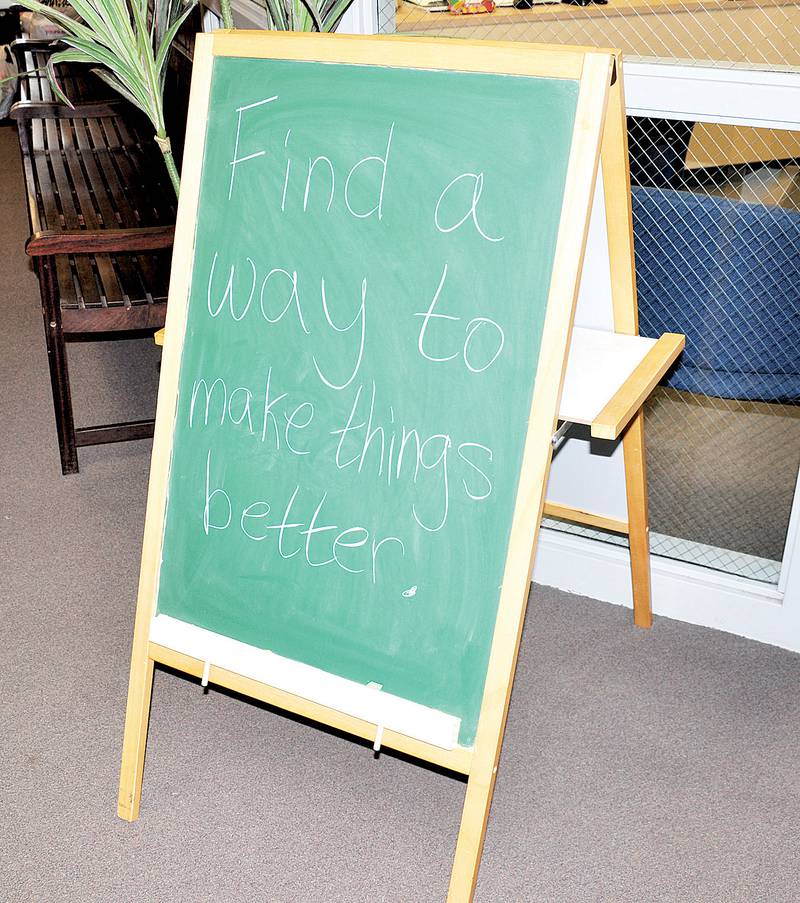 Find a
way to
make things
better.